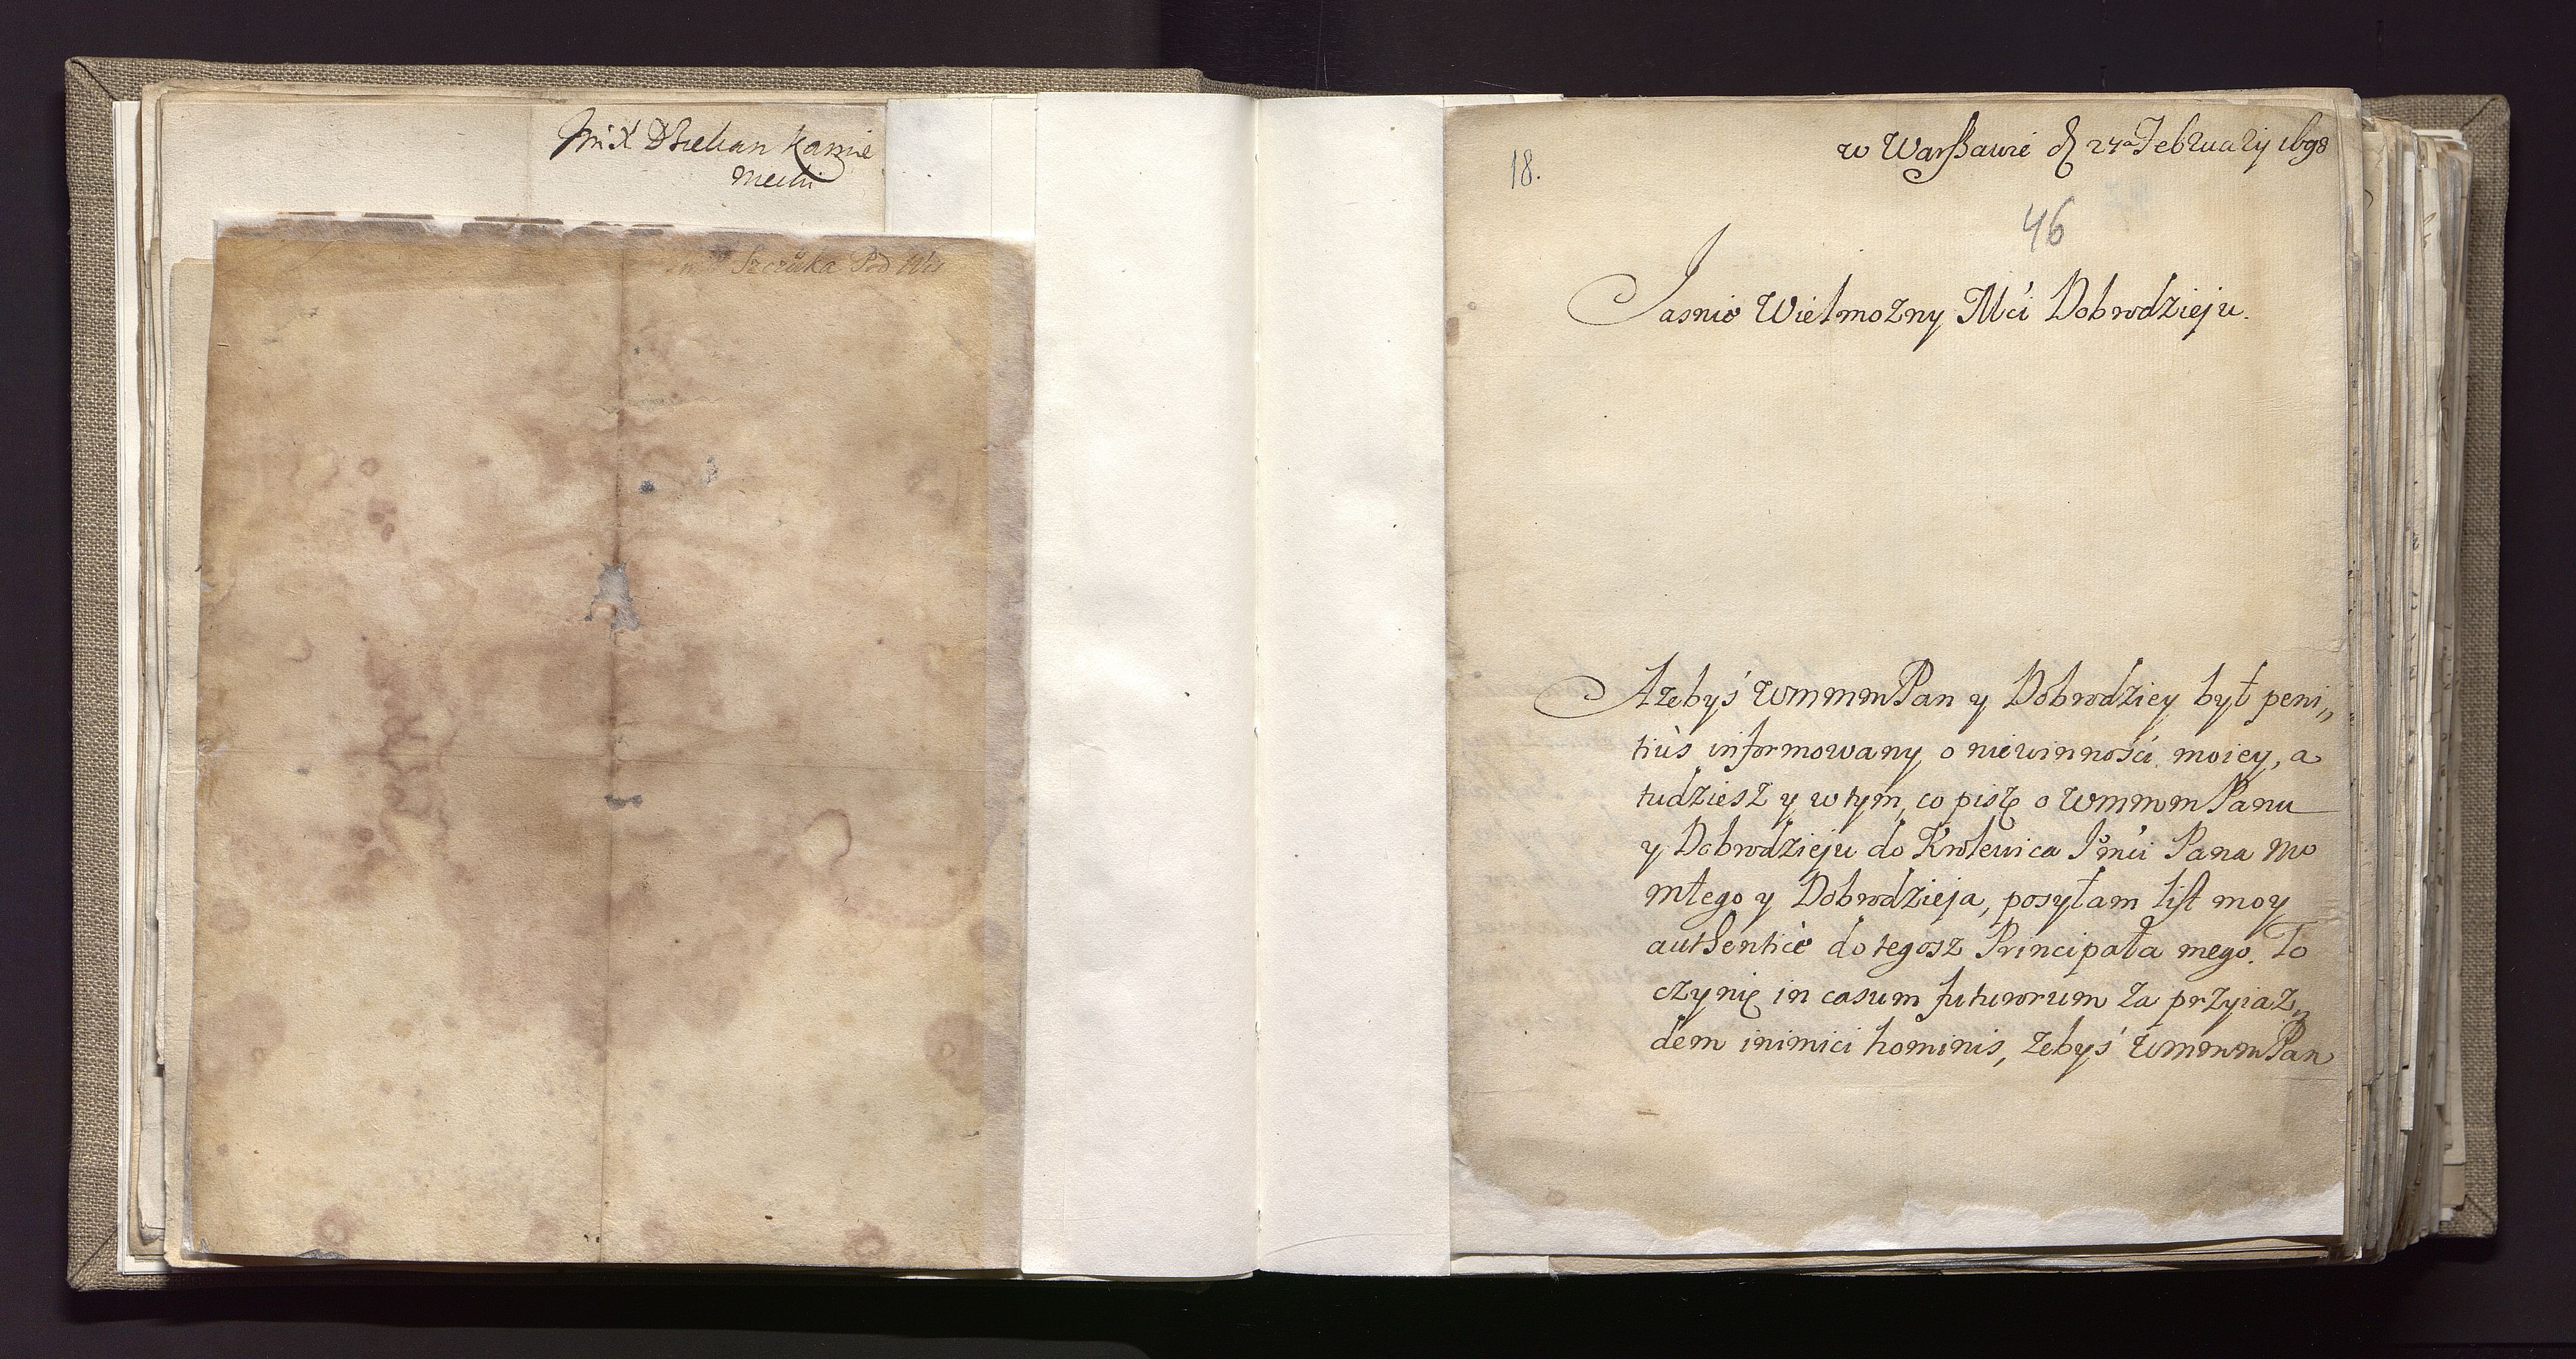 Jm X Dziekan Kamie
niecki
Szczuka Pod Lit
18.
w Warszawie d 24a February 1698
46
Jasnie Wielmozny Mći Dobrodzieju.
Azebyś WmmmPan y Dobrodziey był peni„
tiùs informowany o niewinnośći moiey, a
tudziesz y w tym, co piszę o WmmmPanu
y Dobrodzieju do Krolewica Jmći Pana mo
młego y Dobrodzieja, posyłam list moy
authenticè do tegosz Principała mego. To
czynię in casum futurorum za przyiaz„
dem inimici hominis, zebyś WmmmPan